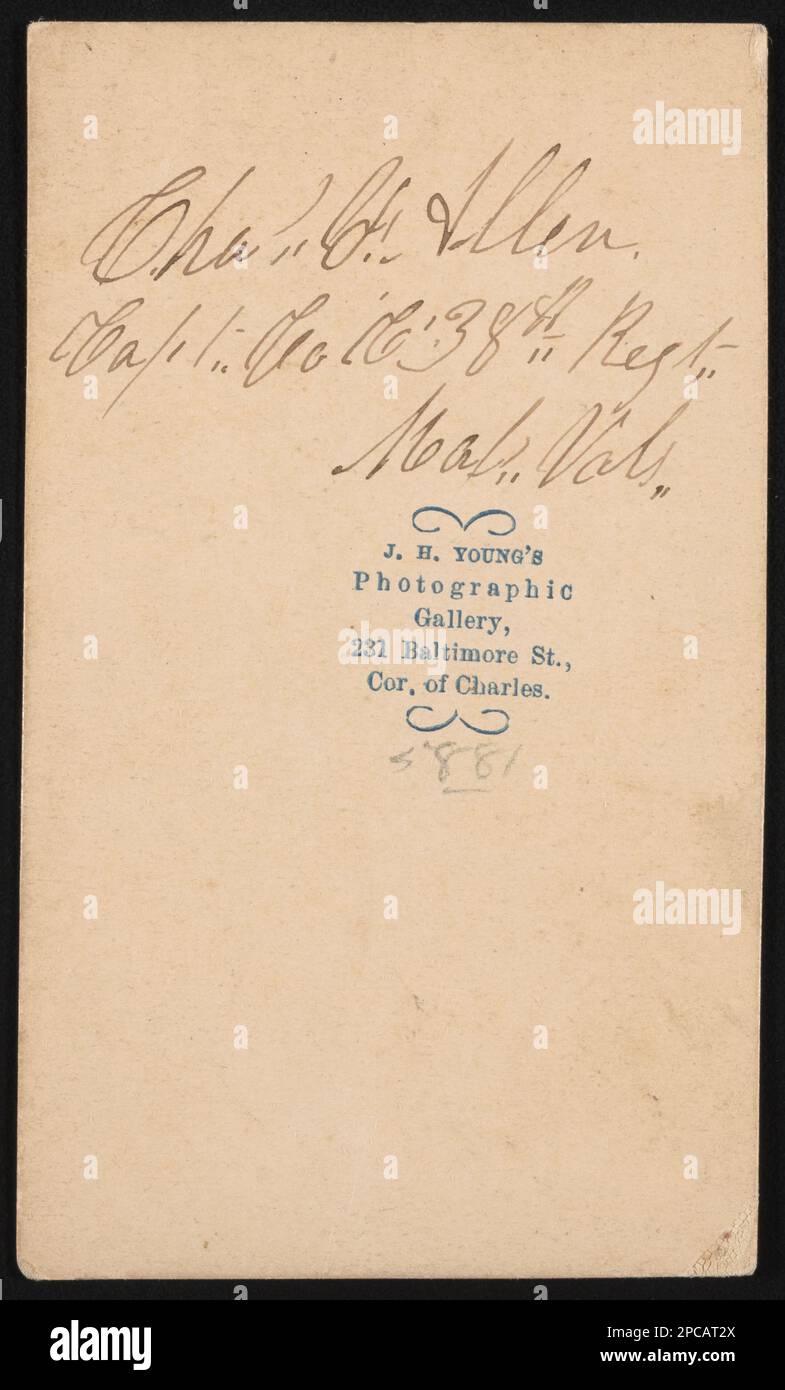 Chas„ Allen.
Capt„ Co 38th Regt„
Mas„ Vols„
J. H. YOUNG'S
Photographic
Gallery,
231 Baltimore St.,
Cor. of Charles.
5881
alamy
Image ID: 2PCAT2X
www.alamy.com